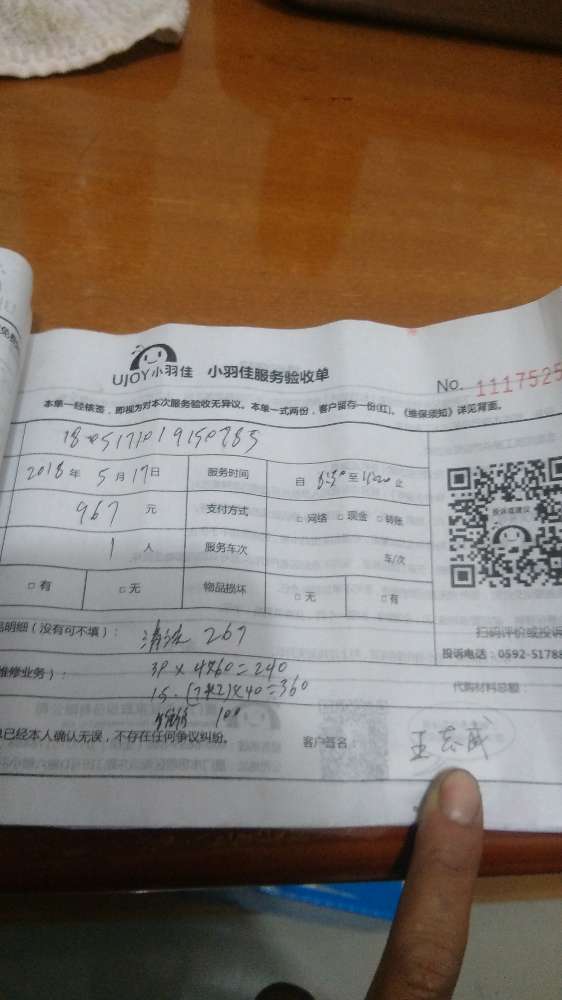 UJOY小羽佳 小羽佳服务验收单
No. 1117525
本单一经核签，即视为对本次服务验收无异议。本单一式两份，客户留存一份(红)。《维保须知》详见背面。
2018年 5月17日 服务时间 自 至 止
967元 支付方式 □网络 □现金 □转账
1人 服务车次 车/次
投诉或建议
□有 □无 物品损坏 □无 □有
明细（没有可不填）： 清洗 267
扫码评价或投诉
投诉电话：0592-51788
维修业务）： 39×4×60=240
代购材料总额：
360
100
已经本人确认无误，不存在任何争议纠纷。 客户签名： 王志